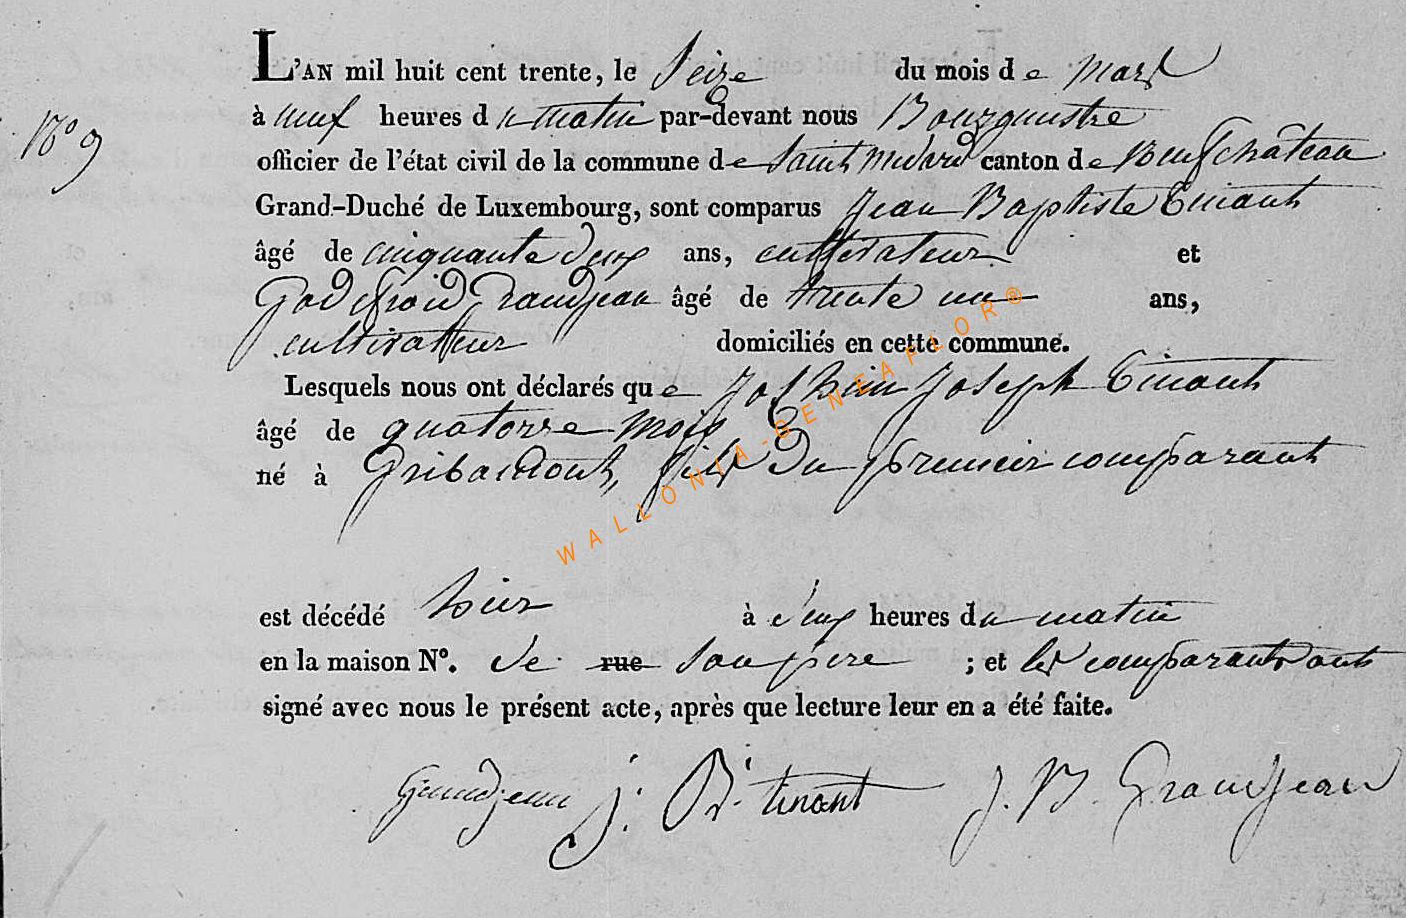 L'AN mil huit cent trente, le Seize du mois de Mars
N° 9
à neuf heures du matin par-devant nous Bourgmestre
officier de l'état civil de la commune de Saint Medard canton de Neufchâteau
Grand-Duché de Luxembourg, sont comparus Jean Baptiste Tinant
âgé de cinquante deux ans, cultivateur et
Godefroid Grandjean âgé de trente un ans,
cultivateur domiciliés en cette commune.
Lesquels nous ont déclarés que Joseph Tinant
âgé de quatorze mois
né à Gribaumont, fils du premier comparant
est décédé hier à deux heures du matin
en la maison N°. de rue son père ; et les comparants ont
signé avec nous le présent acte, après que lecture leur en a été faite.
Grandjean J. Bt. tinant J. B. Grandjean
WALLONIA-GENEAFLOR®